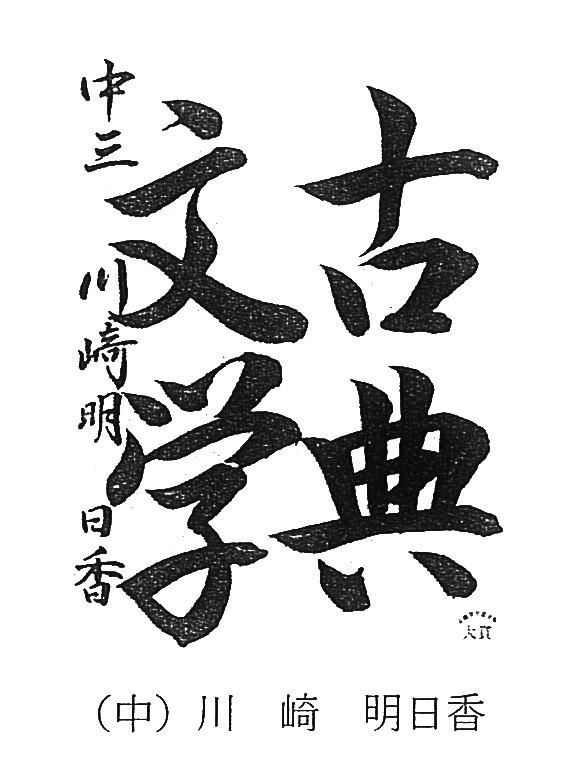 古典
文学
中三 川崎明日香
大賞
（中）川　崎　明日香